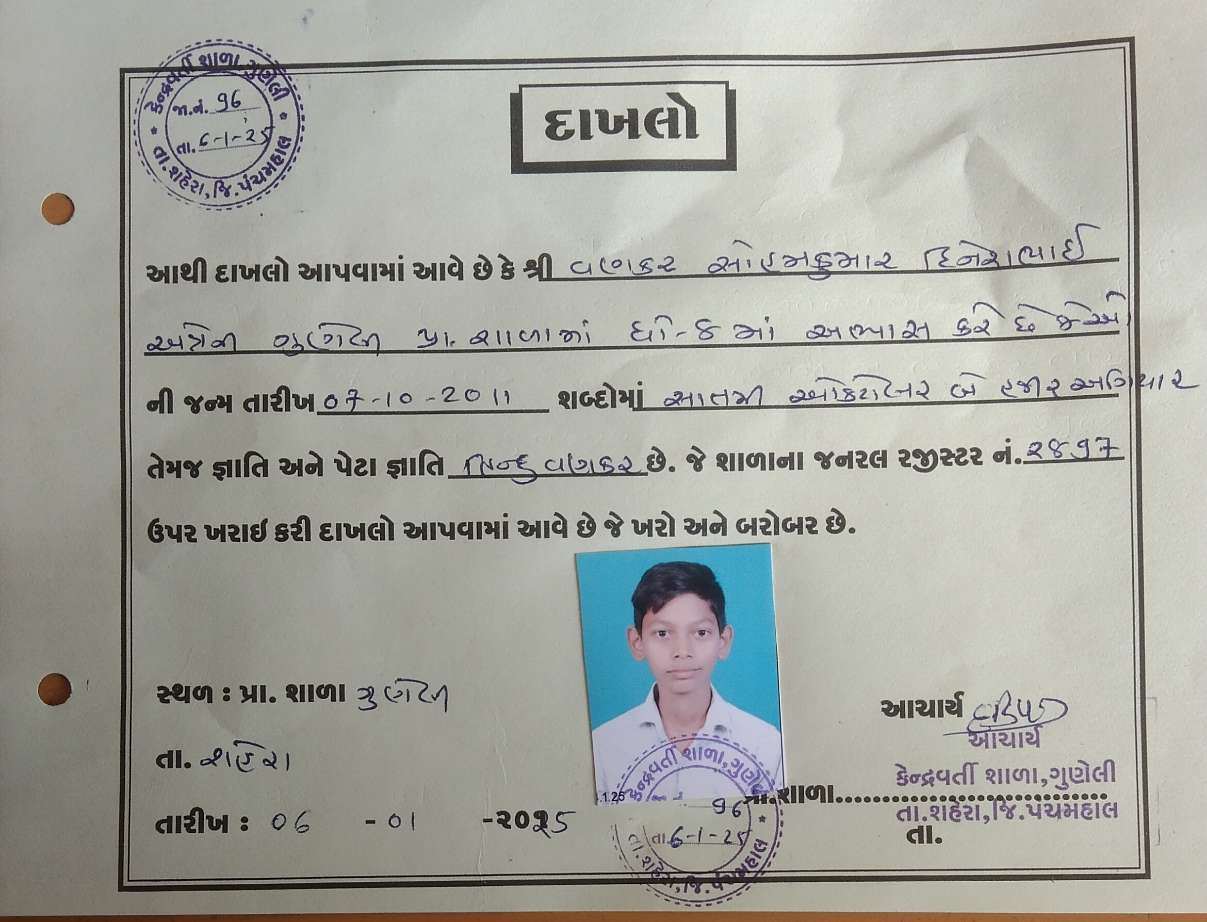 કેન્દ્રવર્તી શાળા, ગુણેલી
જા.નં. 96
તા. 6-1-25
તા.શહેરા, જિ.પંચમહાલ
દાખલો
આથી દાખલો આપવામાં આવે છે કે શ્રી વણકર સોહમકુમાર દિનેશભાઈ
અત્રેની ગુણેલી પ્રા. શાળામાં ધો-૮ માં અભ્યાસ કરે છે જેઓ
ની જન્મ તારીખ 07-10-2011 શબ્દોમાં સાતમી ઓક્ટોબર બે હજાર અગિયાર
તેમજ જ્ઞાતિ અને પેટા જ્ઞાતિ હિન્દુ વણકર છે. જે શાળાના જનરલ રજીસ્ટર નં. ૨૪૧૭
ઉપર ખરાઇ કરી દાખલો આપવામાં આવે છે જે ખરો અને બરોબર છે.
સ્થળ : પ્રા. શાળા ગુણેલી
તા. શહેરા
તારીખ : 06 -01 -૨૦૨5
કેન્દ્રવર્તી શાળા, ગુણેલી
.1.25
96
તા. 6-1-25
તા.શહેરા, જિ.પંચમહાલ
આચાર્ય
આચાર્ય
કેન્દ્રવર્તી શાળા,ગુણેલી
પ્રા.શાળા..............................
તા.શહેરા,જિ.પંચમહાલ
તા.